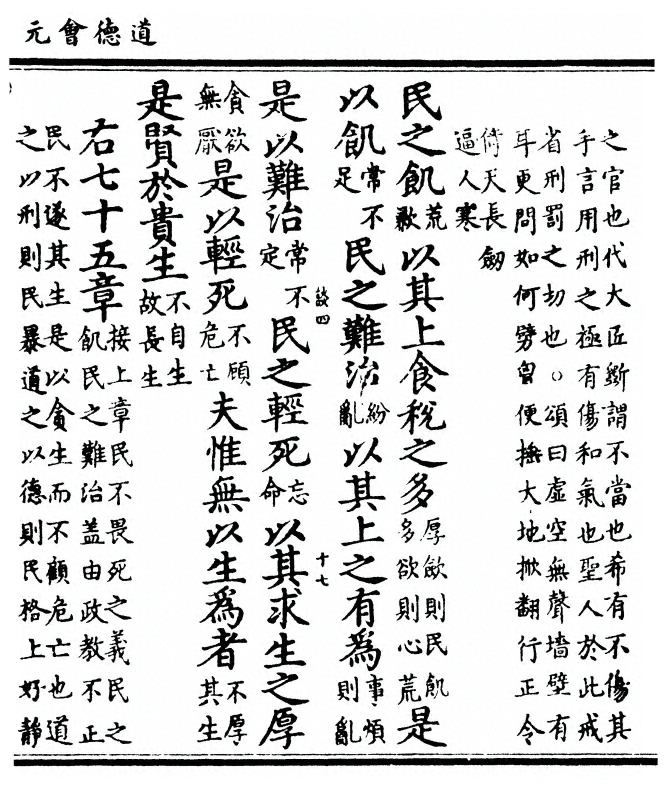 道德會元
之官也代大匠斲謂不當也希有不傷其
手言用刑之極有傷和氣也聖人於此戒
省刑罰之切也○頌曰虛空無聲墻壁有
耳更問如何劈便大地掀翻行正令
倚天長劒
逼人寒
民之飢荒歉以其上食稅之多厚歛則民飢多欲則心荒是
以飢常不足民之難治紛亂以其上之有爲事煩則亂
是以難治常不定民之輕死忘命以其求生之厚
談四 十七
貪欲無厭是以輕死不顧危亡夫惟無以生爲者不厚其生
是賢於貴生不自生故長生
右七十五章接上章民不畏死之義民之飢民之難治盖由政教不正
民不遂其生是以貪生而不顧危亡也道
之以刑則民暴道之以德則民格上好靜